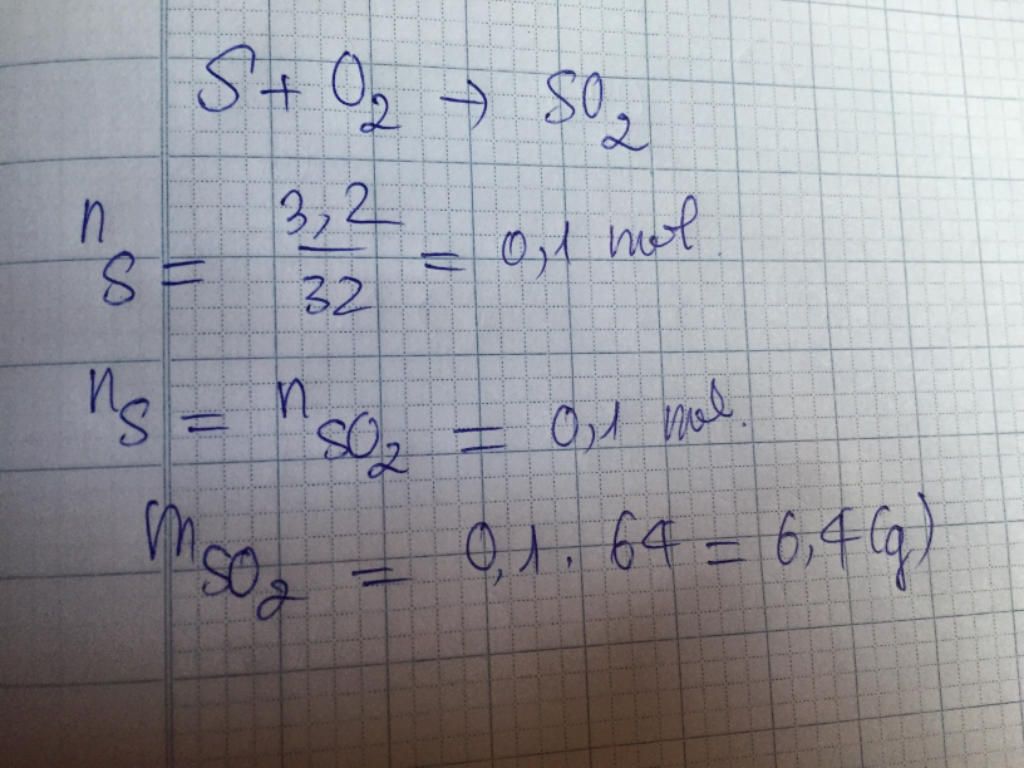 S + O₂ → SO₂
n_S = 3,2/32 = 0,1 mol.
n_S = n_SO₂ = 0,1 mol.
m_SO₂ = 0,1 . 64 = 6,4 (g)